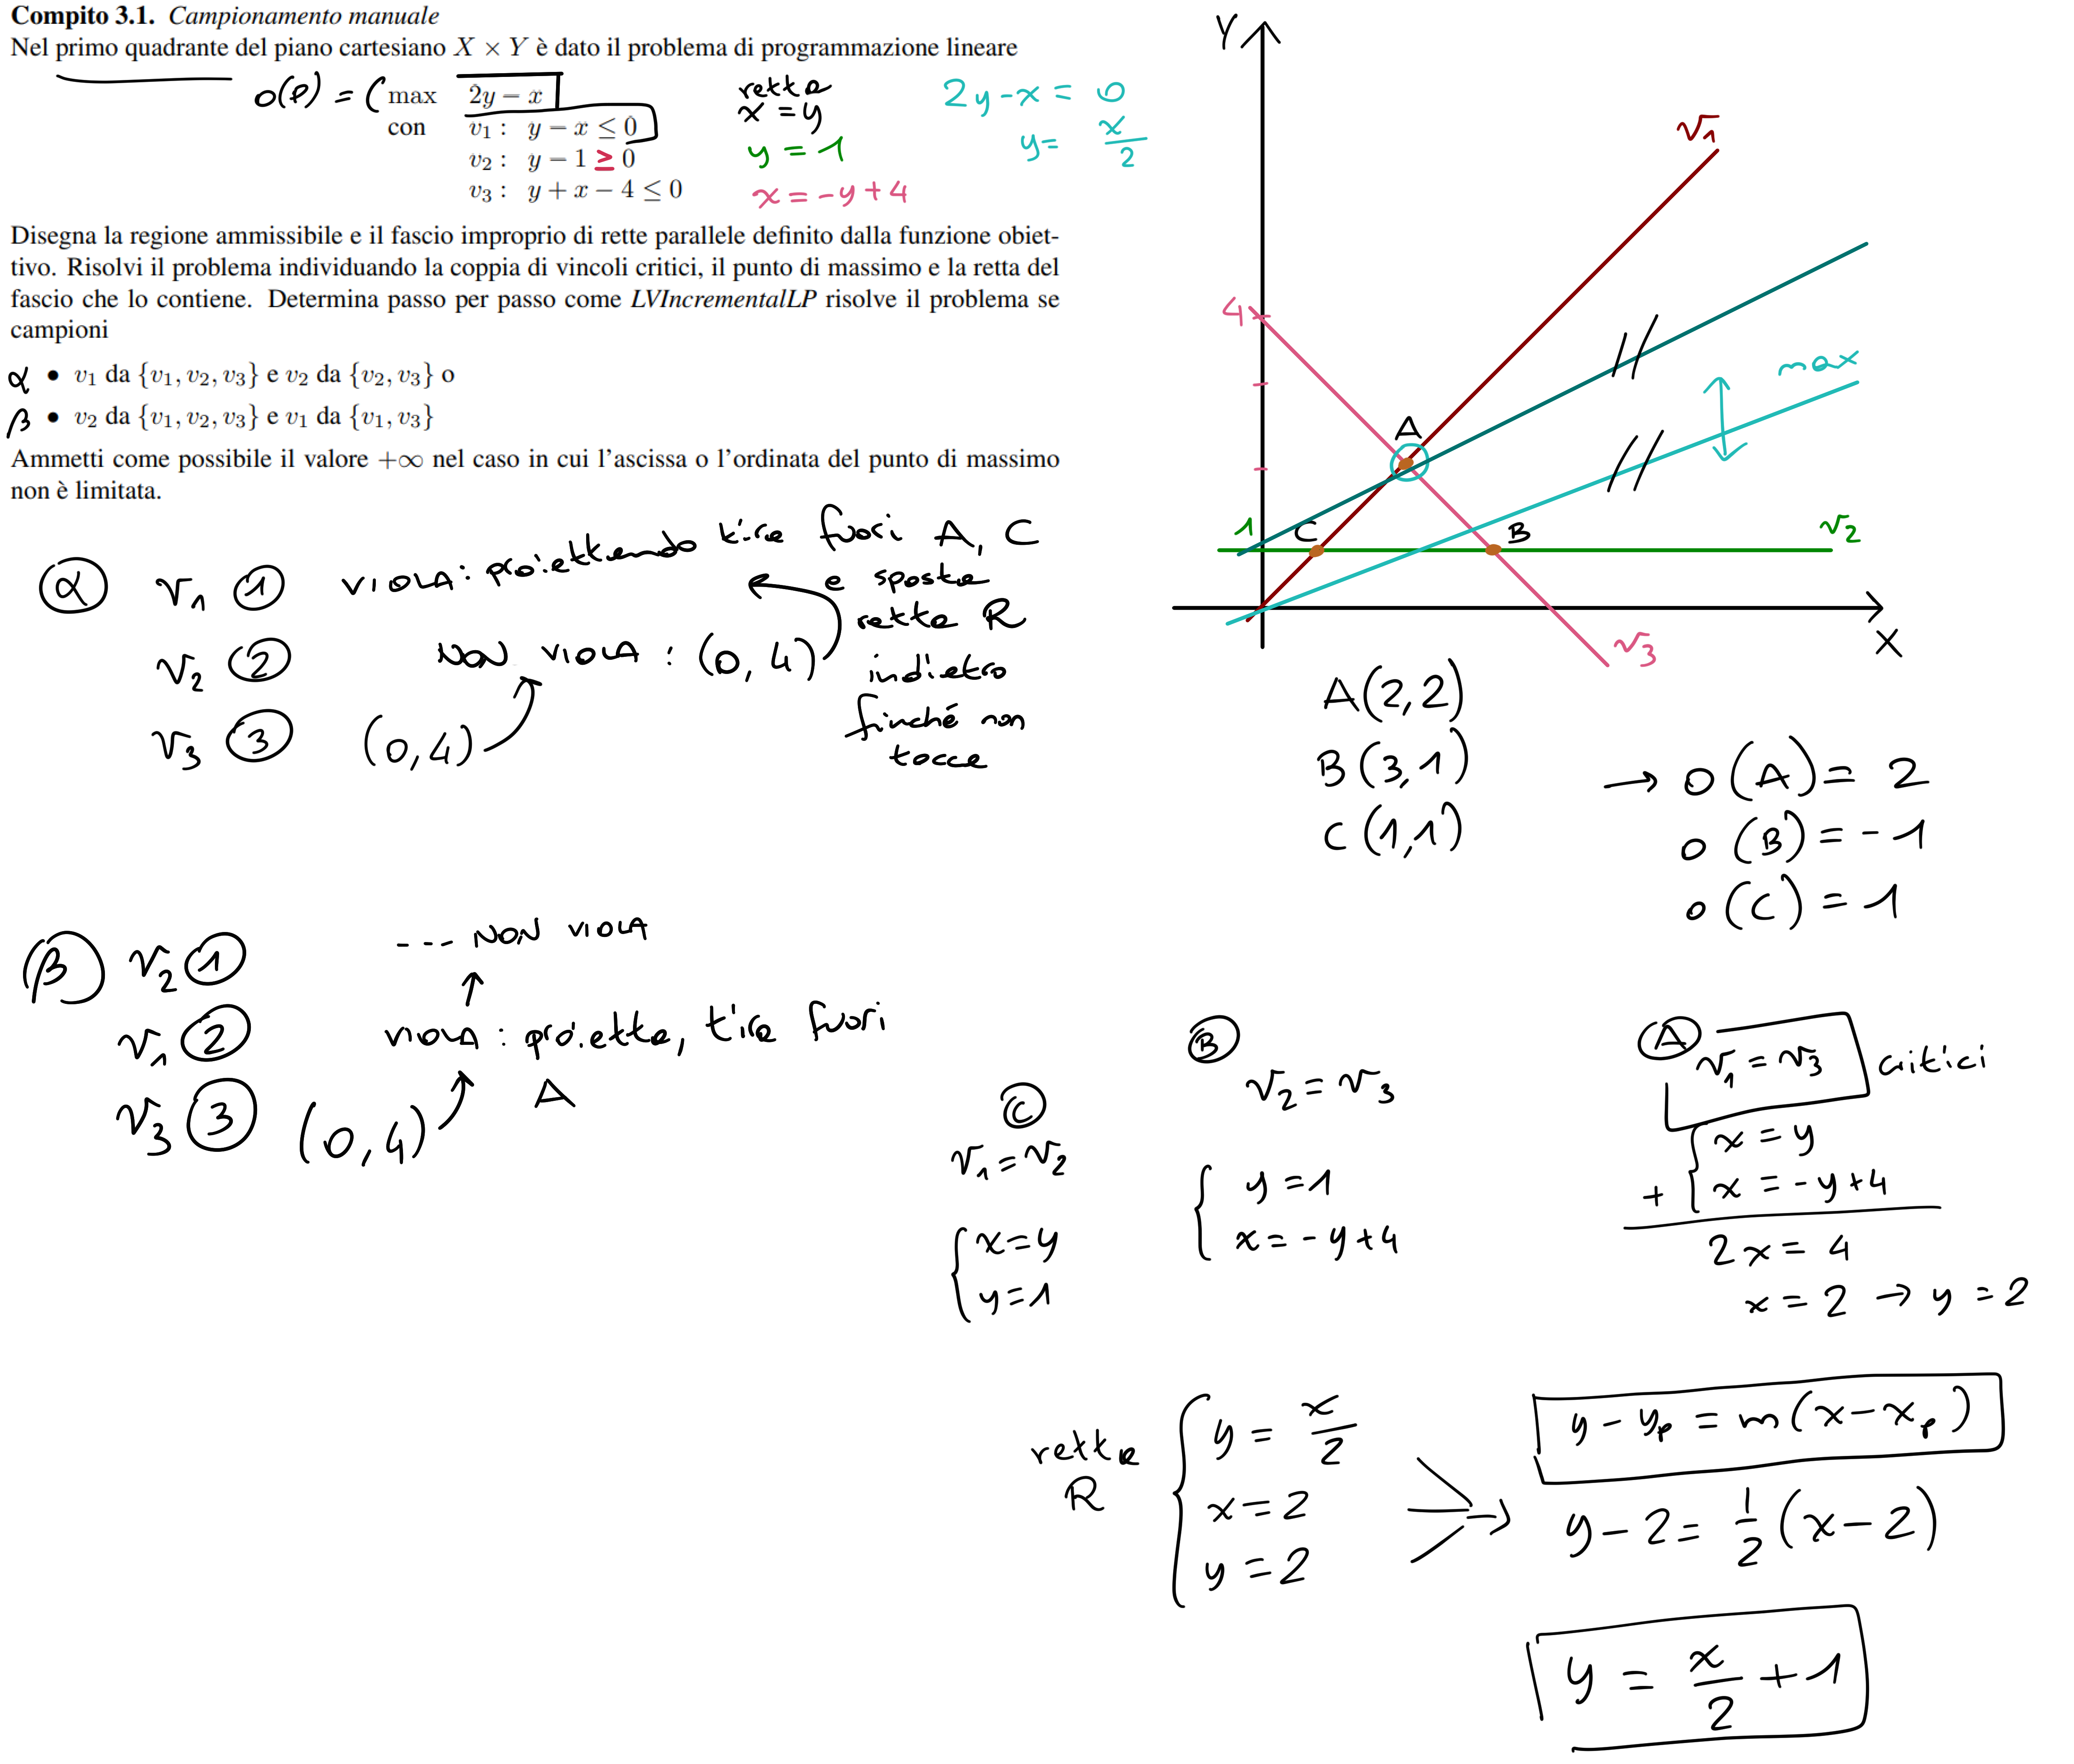 Compito 3.1. Campionamento manuale
Nel primo quadrante del piano cartesiano X × Y è dato il problema di programmazione lineare
o(P) = ( max 2y − x
con v1 : y − x ≤ 0
v2 : y − 1 ≥ 0
v3 : y + x − 4 ≤ 0
retta
x = y
y = 1
x = -y + 4
2y - x = 0
y = x/2
Disegna la regione ammissibile e il fascio improprio di rette parallele definito dalla funzione obiet-
tivo. Risolvi il problema individuando la coppia di vincoli critici, il punto di massimo e la retta del
fascio che lo contiene. Determina passo per passo come LVIncrementalLP risolve il problema se
campioni
α • v1 da {v1, v2, v3} e v2 da {v2, v3} o
β • v2 da {v1, v2, v3} e v1 da {v1, v3}
Ammetti come possibile il valore +∞ nel caso in cui l'ascissa o l'ordinata del punto di massimo
non è limitata.
Y
v1
4
max
A
1
C
B
v2
X
v3
α v1 1 VIOLA: proiettando tira fuori A, C
e sposta
retta R
indietro
finché non
tocca
v2 2 NON VIOLA : (0, 4)
v3 3 (0, 4)
A(2,2)
B(3,1)
C(1,1)
→ o(A) = 2
o(B) = -1
o(C) = 1
β v2 1 --- NON VIOLA
v1 2 VIOLA : proietta, tira fuori
A
v3 3 (0, 4)
C
v1 = v2
{ x = y
y = 1
B
v2 = v3
{ y = 1
x = - y + 4
A v1 = v3 critici
{ x = y
+ x = - y + 4
2x = 4
x = 2 → y = 2
retta
R
{ y = x/2
x = 2
y = 2
y - yp = m(x - xp)
y - 2 = 1/2 (x - 2)
y = x/2 + 1